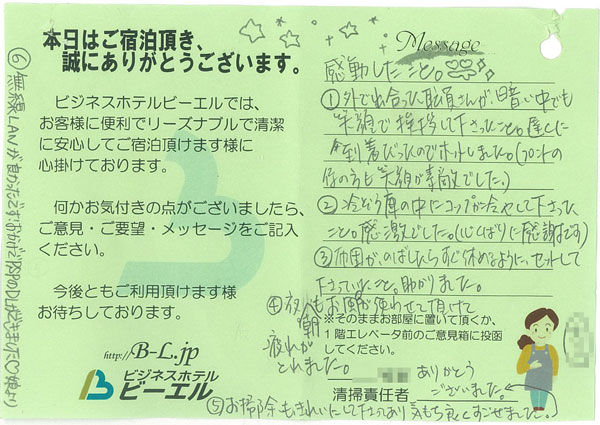 本日はご宿泊頂き、
誠にありがとうございます。
ビジネスホテルビーエルでは、
お客様に便利でリーズナブルで清潔
に安心してご宿泊頂けます様に
心掛けております。
何かお気付きの点がございましたら、
ご意見・ご要望・メッセージをご記入
ください。
今後ともご利用頂けます様
お待ちしております。
http://B-L.jp
ビジネスホテル
ビーエル
Message
感動したこと。
①外で出会った職員さんが、暗い中でも
笑顔で挨拶して下さったこと。遅くに
到着だったのでホットしました。(フロントの
方も笑顔が素敵でした。)
②冷ぞう庫の中にコップが冷やして下さった
こと。感激でした。(心くばりに感謝です)
③布団が、のばしたらすぐ休めるように、セットして
下さっていたこと。助かりました。
④夜も朝もお風呂使わせて頂けて
疲れが
とれました。
※そのままお部屋に置いて頂くか、
1階エレベータ前のご意見箱に投函
してください。
清掃責任者
ありがとう
ございました。
⑤お掃除もきれいにして下さってあり気持ち良くすごせました。
⑥無線LANが良かったです